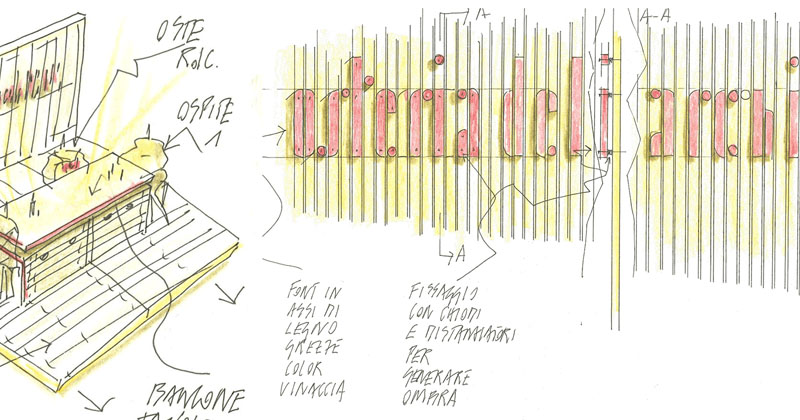 OSTE
ROIC.
OSPITE
1
A
A-A
osteria del
archi
A
FONT IN
ASSI DI
LEGNO
GREZZE
COLOR
VINACCIA
FISSAGGIO
CON CHIODI
E DISTANZIATORI
PER
GENERARE
OMBRA
BANCONE